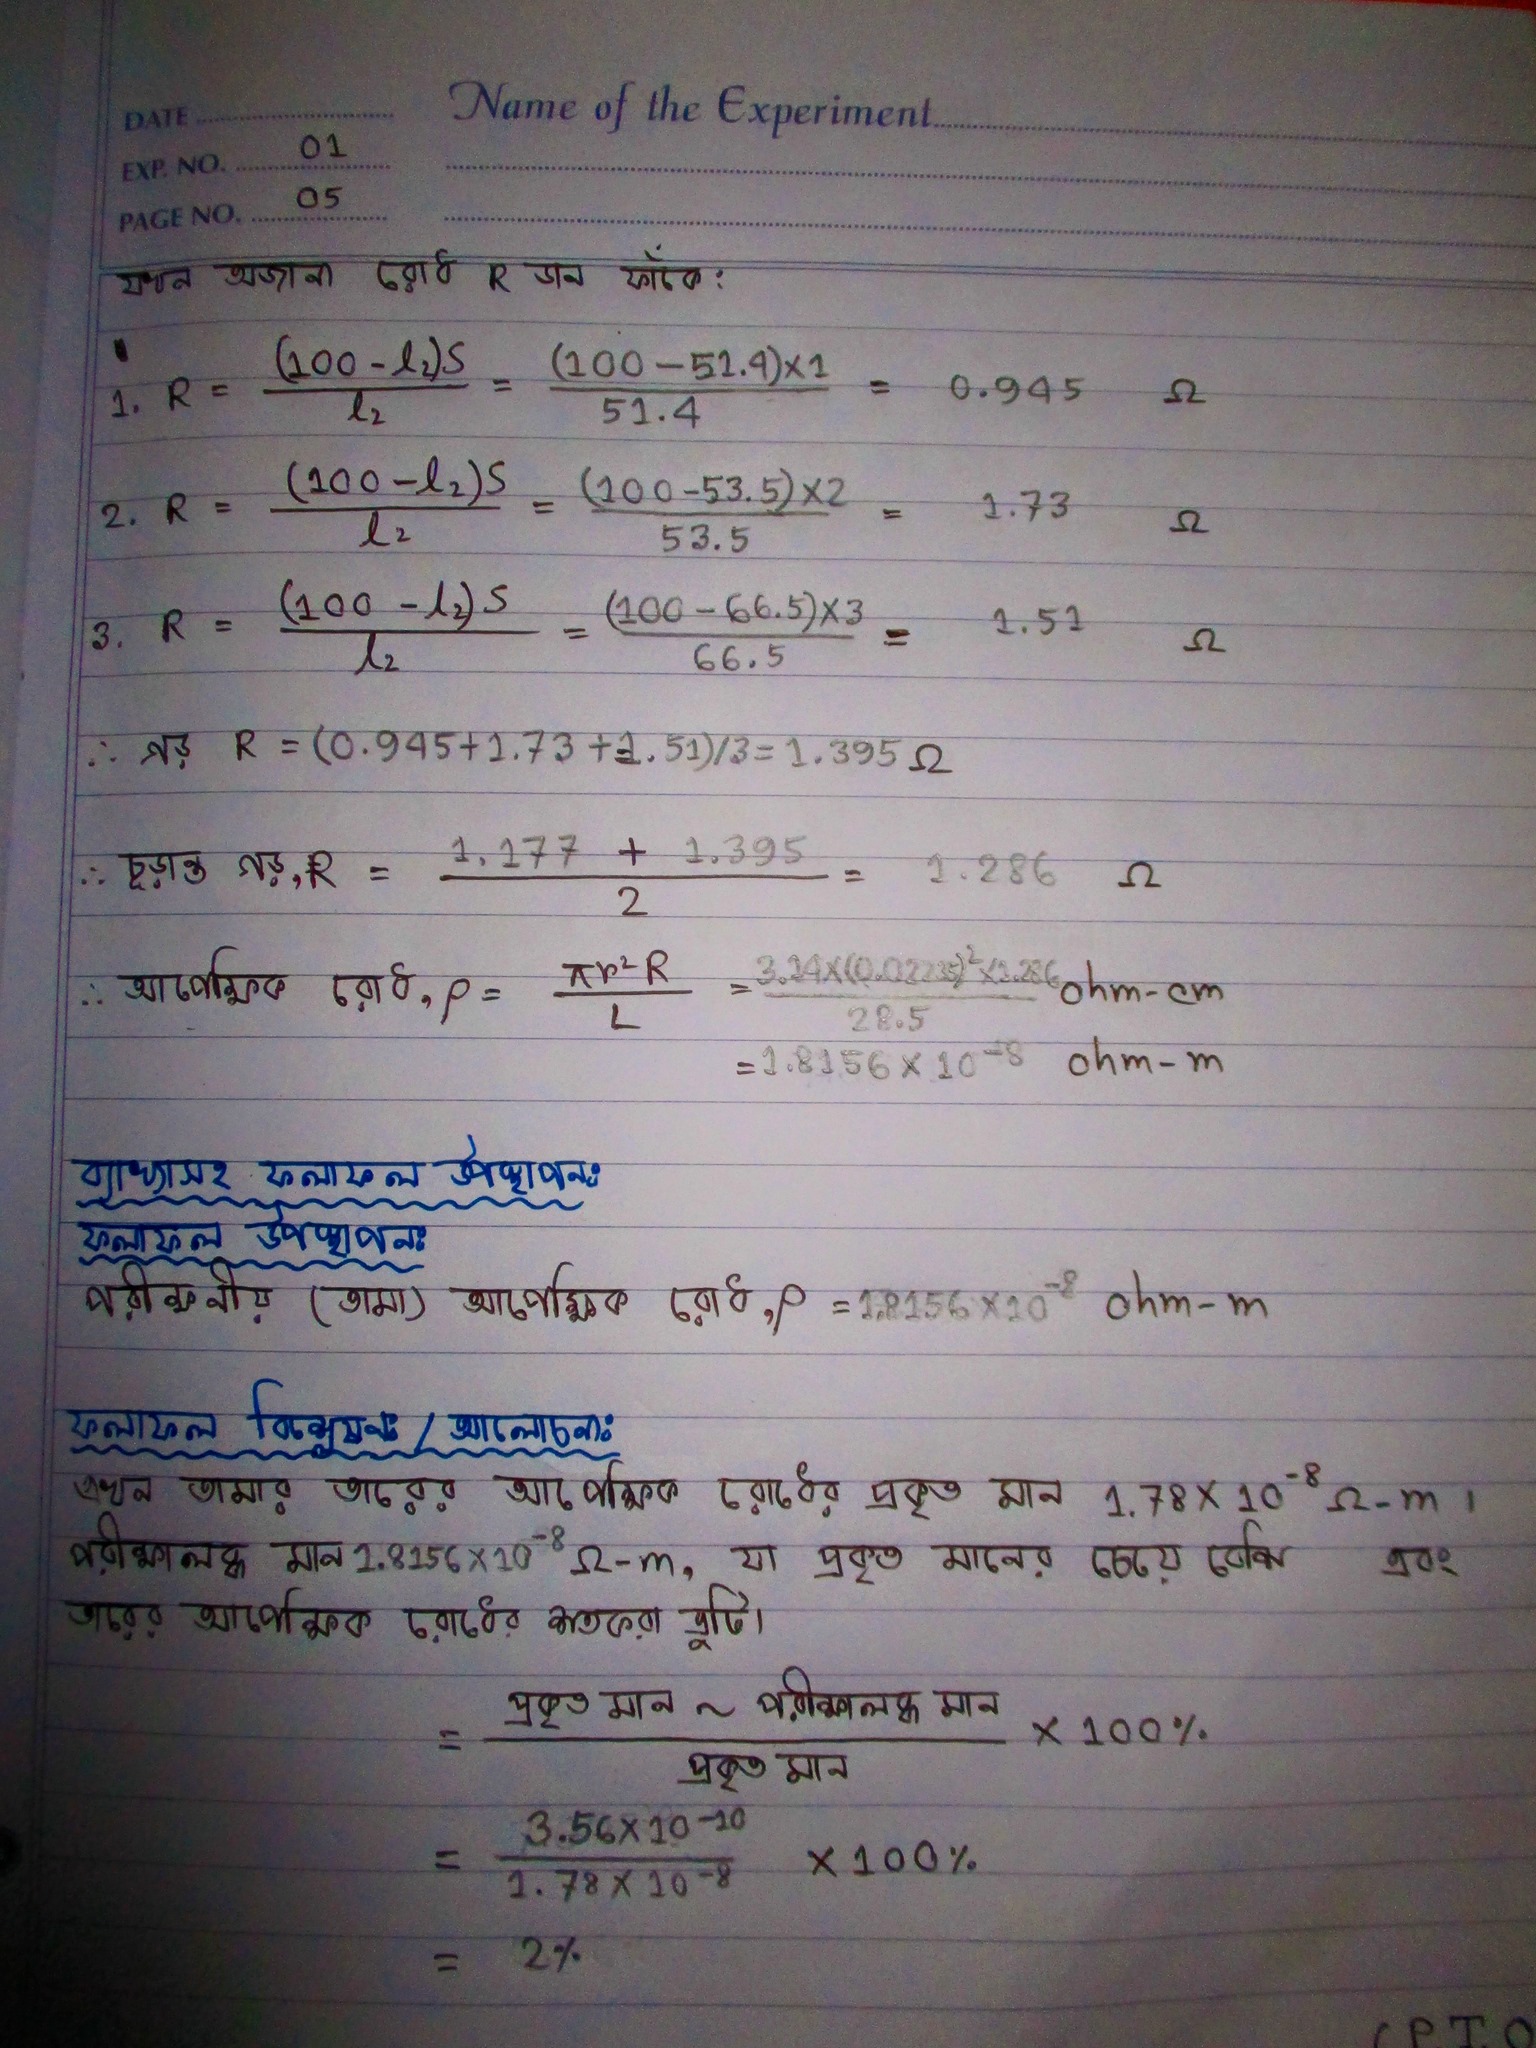 Name of the Experiment
DATE
EXP. NO. 01
PAGE NO. 05
যখন অজানা রোধ R ডান ফাঁকে:
1. R = (100 - l₂)S / l₂ = (100 - 51.4)×1 / 51.4 = 0.945 Ω
2. R = (100 - l₂)S / l₂ = (100 - 53.5)×2 / 53.5 = 1.73 Ω
3. R = (100 - l₂)S / l₂ = (100 - 66.5)×3 / 66.5 = 1.51 Ω
∴ গড় R = (0.945+1.73+1.51)/3 = 1.395 Ω
∴ চূড়ান্ত গড়, R = 1.177 + 1.395 / 2 = 1.286 Ω
∴ আপেক্ষিক রোধ, ρ = πr²R / L = 3.14×(0.02235)²×1.286 / 28.5 ohm-cm
= 1.8156 × 10⁻⁸ ohm-m
ব্যাখ্যাসহ ফলাফল উপস্থাপনঃ
ফলাফল উপস্থাপনঃ
পরীক্ষনীয় (তামা) আপেক্ষিক রোধ, ρ = 1.8156×10⁻⁸ ohm-m
ফলাফল বিশ্লেষনঃ / আলোচনাঃ
এখন তামার তারের আপেক্ষিক রোধের প্রকৃত মান 1.78×10⁻⁸ Ω-m।
পরীক্ষালব্ধ মান 1.8156×10⁻⁸ Ω-m, যা প্রকৃত মানের চেয়ে বেশি এবং
তারের আপেক্ষিক রোধের শতকরা ত্রুটি।
= প্রকৃত মান ~ পরীক্ষালব্ধ মান / প্রকৃত মান × 100%
= 3.56×10⁻¹⁰ / 1.78×10⁻⁸ × 100%
= 2%
(P.T.O